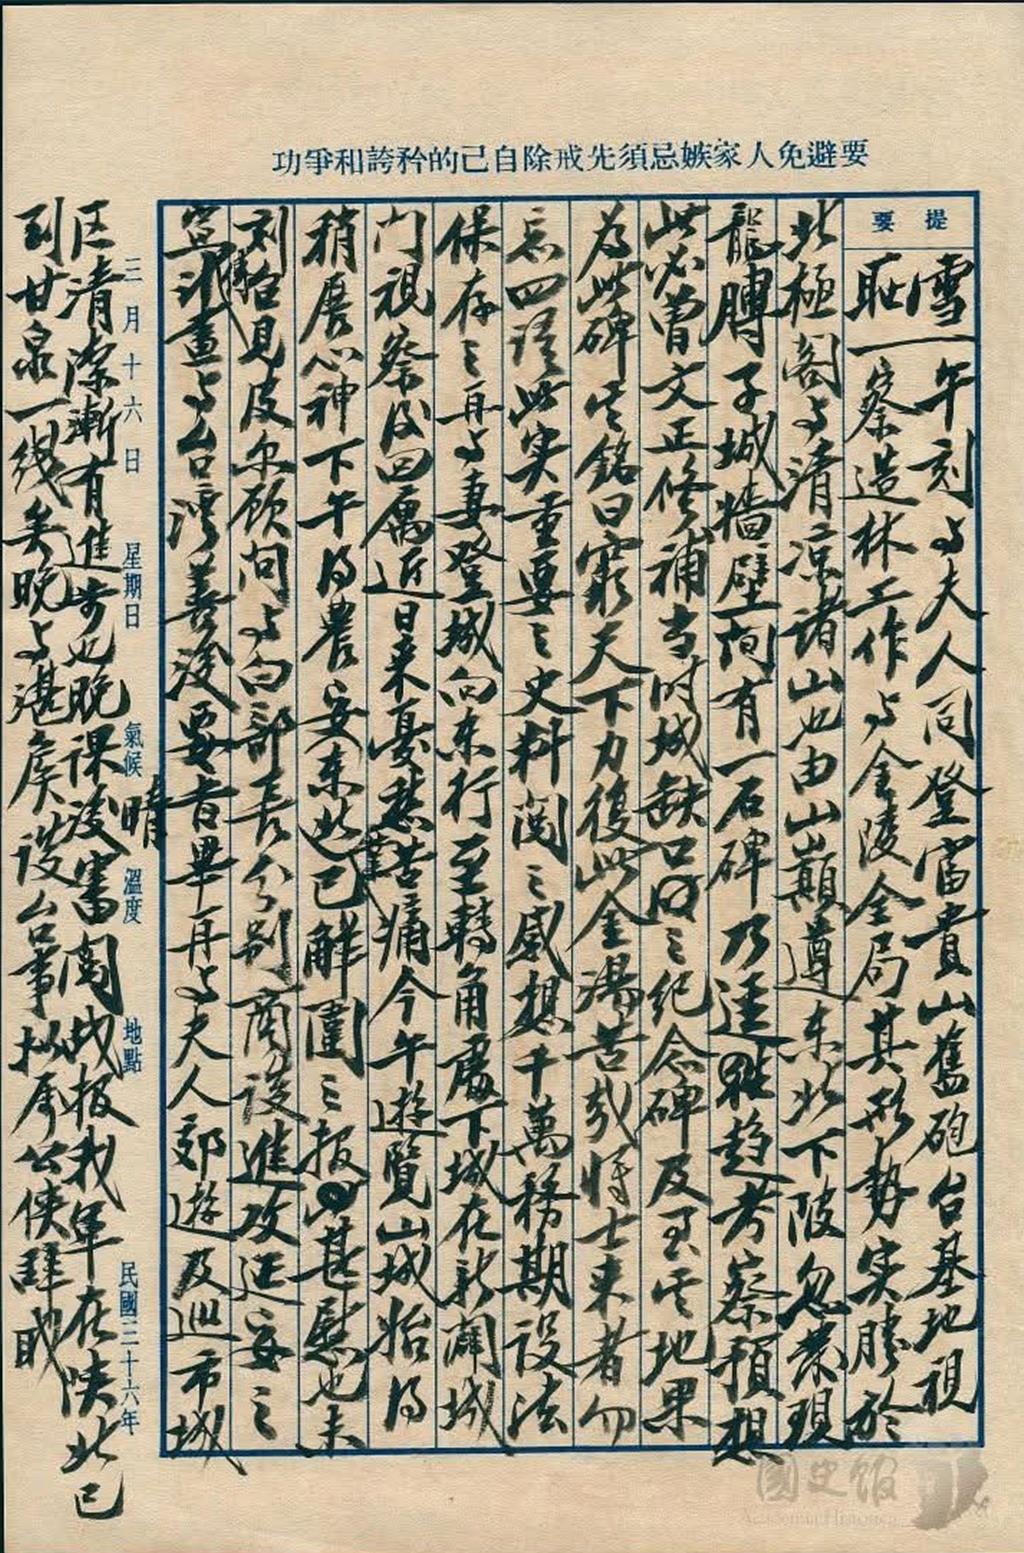 要避免人家嫉忌須先戒除自己的矜誇和爭功
提要
雪
恥
一午刻与夫人同登富貴山舊砲台基地視
一察造林工作与金陵全局其形勢实勝於
北極閣与清凉諸山也由山巔遵东北下陂忽發現
龍膊子城墻壁間有一石碑乃逕趋考察預想
此必曾文正修補当时城缺口之紀念碑及至其地果
为此碑其銘曰窮天下力復此金湯苦哉將士来者勿
忘四语此实重要之史料閱之感想千萬務期設法
保存之再与妻登城向东行至轉角處下城在新闢城
门視察後回寓近日来憂愁苦痛今午遊覽山城始得
稍舒心神下午得農安东北已解圍之报甚慰也未
刻召見皮尔顾问与白部長分別商談進攻延安之
計畫与台湾善後要旨畢再与夫人郊遊及巡市城
区清潔漸有進步也晚課後審閱战报我军在陝北已
到甘泉一线矣晚与湛侯談台事
三月十六日
星期日
氣候 晴
溫度
地點
民國三十六年
國史館
Academia Historica